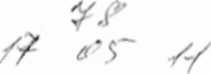 78
17 05 11